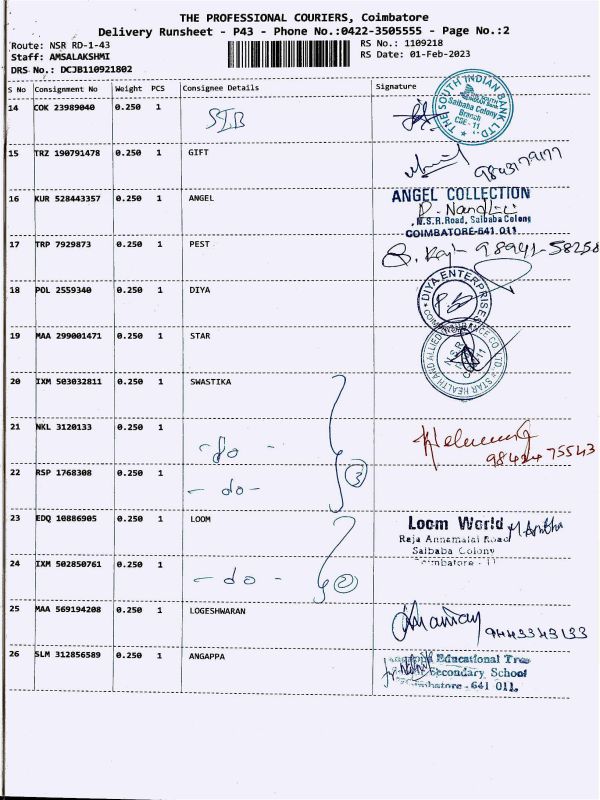 THE PROFESSIONAL COURIERS, Coimbatore
Delivery Runsheet - P43 - Phone No.:0422-3505555 - Page No.:2
Route: NSR RD-1-43
RS No.: 1109218
Staff: AMSALAKSHMI
RS Date: 01-Feb-2023
DRS No.: DCJB110921802
S No Consignment No Weight PCS Consignee Details Signature
14 COK 23989040 0.250 1 SIB
THE SOUTH INDIAN BANK LTD. Saibaba Colony Branch CBE - 11
15 TRZ 190791478 0.250 1 GIFT
16 KUR 528443357 0.250 1 ANGEL
ANGEL COLLECTION
N.S.R.Road, Saibaba Colony
COIMBATORE-641 011
17 TRP 7929873 0.250 1 PEST
98941-58258
18 POL 2559340 0.250 1 DIYA
DIYA ENTERPRISES
19 MAA 299001471 0.250 1 STAR
STAR HEALTH AND ALLIED INSURANCE CO LTD.
20 IXM 503032811 0.250 1 SWASTIKA
21 NKL 3120133 0.250 1 -do-
22 RSP 1768308 0.250 1 -do- 3
23 EDQ 10886905 0.250 1 LOOM
Loom World
Raja Annamalai Road
Saibaba Colony
Coimbatore - 11
24 IXM 502850761 0.250 1 -do- 2
25 MAA 569194208 0.250 1 LOGESHWARAN
9443343133
26 SLM 312856589 0.250 1 ANGAPPA
Educational Trus
Secondary School
Coimbatore - 641 011.